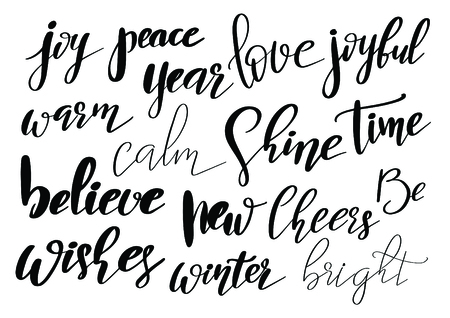 joy peace love joyful
year
warm
calm Shine Time
believe new Cheers Be
wishes winter bright